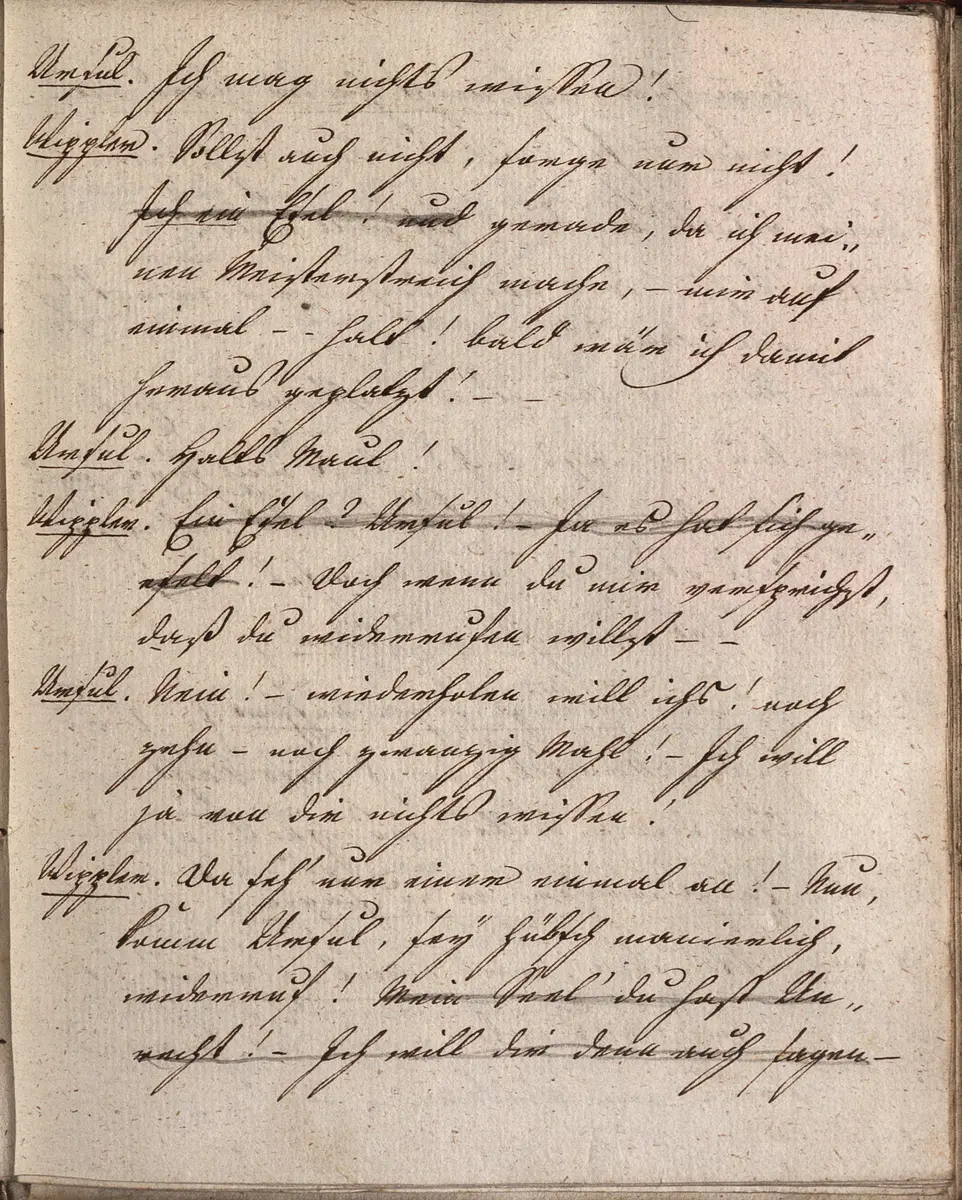 Ursul. Ich mag nichts wissen!
Wippler. Sollst auch nicht, sorge nur nicht!
Ich ein Esel! und gerade, da ich mei„
nen Meisterstreich mache, – mir auf
einmal – – halt! bald wär ich damit
heraus geplatzt! – –
Ursul. Halts Maul!
Wippler. Ein Esel? Ursul! – Ja es hat sich ge„
eselt! – Doch wenn du mir versprichst,
daß du widerrufen willst – –
Ursul. Nein! – wiederholen will ichs! noch
zehn – noch zwanzig Mahl! – Ich will
ja von dir nichts wissen!
Wippler. Da seh' nur einer einmal an! – Nun,
komm Ursul, sey hübsch manierlich,
widerruf! Mein Seel' du hast Un„
recht! – Ich will dir denn auch sagen –